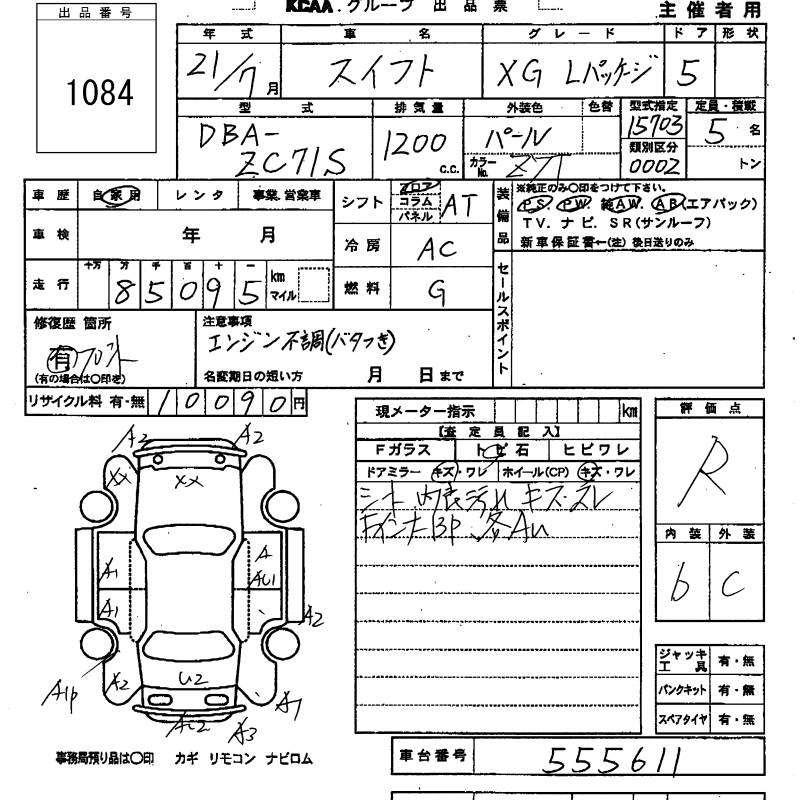 KCAA グループ 出品票
主催者用
出品番号
1084
年式 車名 グレード ドア 形状
21/7月 スイフト XG Lパッケージ 5
型式 排気量 外装色 色替 型式指定 定員・積載
DBA- 1200 c.c. パール 15703 5名
ZC71S カラーNo. Z7T 類別区分 0002 トン
車歴 自家用 レンタ 事業、営業車
シフト フロア コラム パネル AT
装備品
※純正のみ○印をつけて下さい。
PS. PW. 純AW. AB(エアバック)
TV. ナビ. SR(サンルーフ)
新車保証書←(注) 後日送りのみ
車検 年 月
冷房 AC
走行 十万 万 千 百 十 一 km マイル
85095
燃料 G
セールスポイント
修復歴 箇所
有 フロント
(有の場合は○印を)
注意事項
エンジン不調(バタつき)
名変期日の短い方 月 日まで
リサイクル料 有・無 10090円
現メーター指示 km
【査定員記入】
Fガラス トビ石 ヒビワレ
ドアミラー キズ・ワレ ホイール(CP) キズ・ワレ
シート 内張汚れ キズ・スレ
BP 各AU
評価点
R
内装 外装
b C
A2 A2
XX XX
A1 A
AU1
A1 A2
A1P A2 U2 A1
A3
ジャッキ工具 有・無
パンクキット 有・無
スペアタイヤ 有・無
事務局預り品は○印 カギ リモコン ナビロム
車台番号 555611